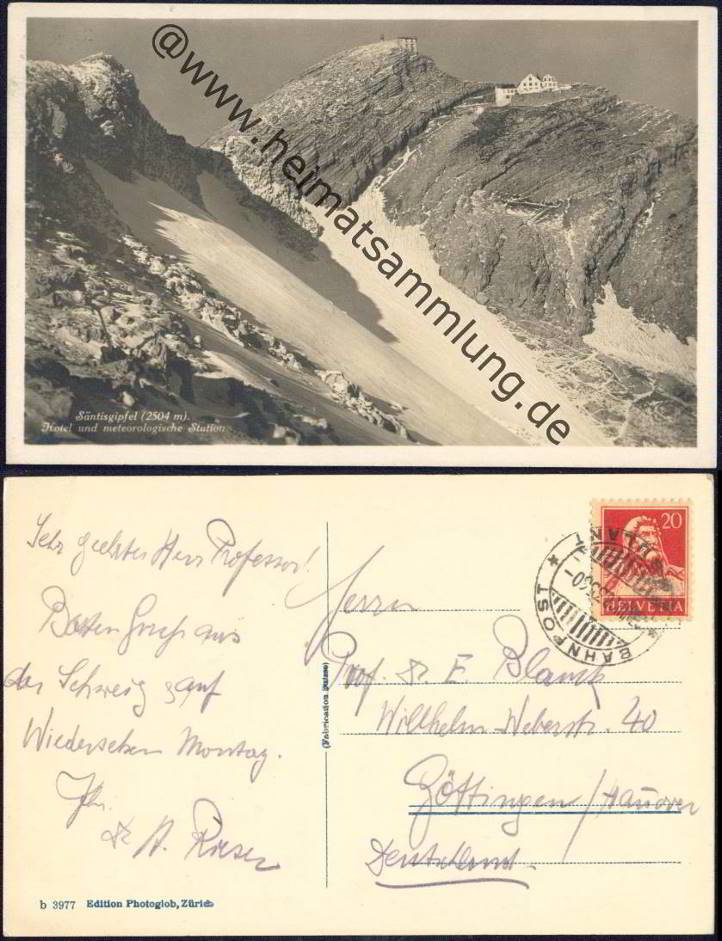 @www.heimatsammlung.de
Säntisgipfel (2504 m).
Hotel und meteorologische Station
Sehr geehrter Herr Professor!
Besten Gruß aus
der Schweiz auf
Wiedersehen Montag.
Ihr
Dr
20
HELVETIA
BAHNPOST
Herrn
Prof. Dr E. Blanck
Willhelm Weberstr. 40
Göttingen / Hanover
Deutschland
(Fabrication suisse)
b 3977 Edition Photoglob, Zürich